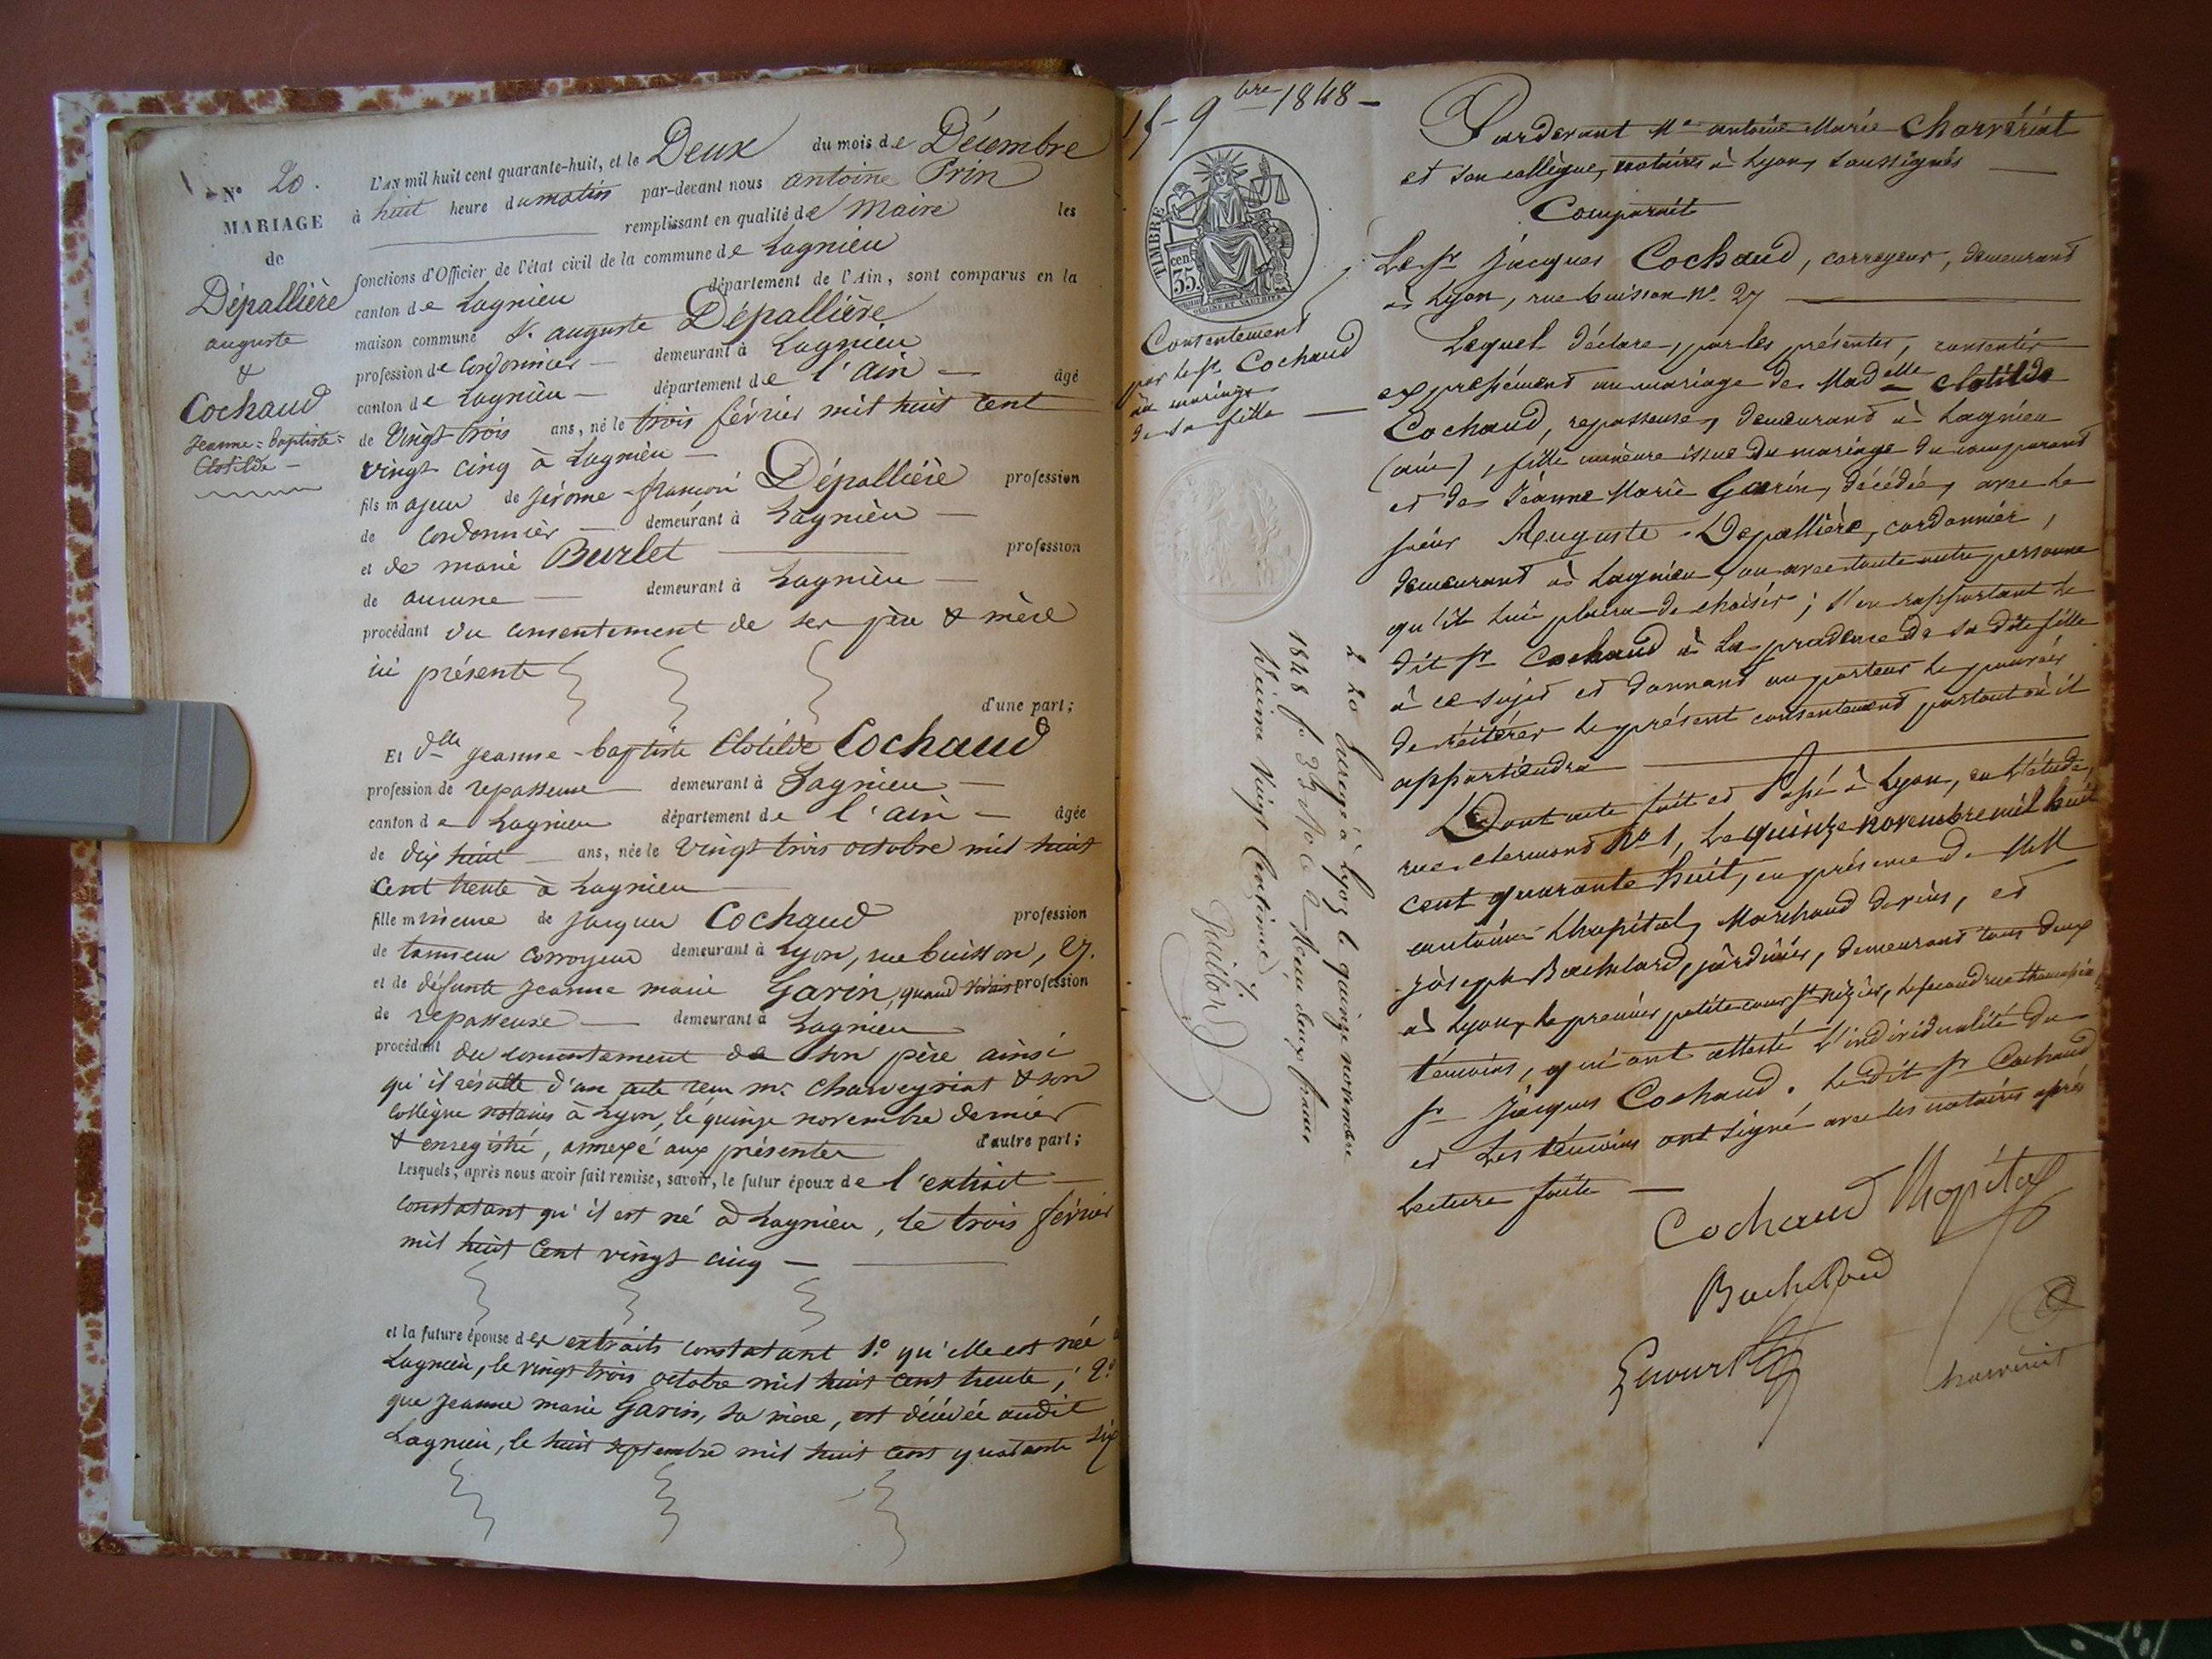 N° 20.
MARIAGE
de
Dépallière
auguste
&
Cochaud
Jeanne=baptiste=
Clotilde —
L'AN mil huit cent quarante-huit, et le Deux du mois de Décembre
à huit heure du matin par-devant nous antoine Prin
remplissant en qualité de Maire les
fonctions d'Officier de l'état civil de la commune de Lagnieu
canton de Lagnieu département de l'Ain, sont comparus en la
maison commune Sr. auguste Dépallière
profession de Cordonnier — demeurant à Lagnieu
canton de Lagnieu — département de l'ain — âgé
de Vingt trois ans, né le trois février mil huit cent
vingt cinq à Lagnieu —
fils majeur de Jérome-françois Dépallière profession
de Cordonnier — demeurant à Lagnieu —
et de marie Burlet — profession
de aucune — demeurant à Lagnieu —
procédant du consentement de ses père & mère
ici présents
d'une part;
Et dlle jeanne-baptiste Clotilde Cochaud
profession de repasseuse — demeurant à Lagnieu —
canton de Lagnieu département de l'ain — âgée
de dix huit — ans, née le Vingt trois octobre mil huit
cent trente à Lagnieu —
fille mineure de jacques Cochaud profession
de tanneur corroyeur demeurant à Lyon, rue buisson, 27.
et de défunte jeanne marie Garin, quand vivait profession
de repasseuse — demeurant à Lagnieu
procédant du consentement de son père ainsi
qu'il résulte d'un acte reçu me. charveyriat & son
collègue notaires à Lyon, le quinze novembre dernier
& enregistré, annexé aux présentes d'autre part;
Lesquels, après nous avoir fait remise, savoir, le futur époux de l'extrait —
constatant qu'il est né à Lagnieu, le trois février
mil huit cent vingt cinq —
et la future épouse des extraits constatant 1° qu'elle est née à
Lagnieu, le vingt trois octobre mil huit cent trente; 2°
que jeanne marie Garin, sa mère, est décédée audit
Lagnieu, le huit septembre mil huit cent quarante six
15 - 9bre 1848 —
TIMBRE
cen.
35.
Consentement
par le Sr. Cochaud
au mariage
de sa fille —
2 20 Enregé à Lyon le quinze novembre
1848 fo 35 Vo Ce 2 Reçu deux francs
décime vingt centimes.
Pardevant Me antoine Marie Charvériat
et son collègue, notaires à Lyon, soussignés —
Comparait
Le Sr Jacques Cochaud, corroyeur, demeurant
à Lyon, rue buisson No. 27 —
Lequel déclare, par les présentes, consentir
expressément au mariage de Madelle Clotilde
Cochaud, repasseuse, demeurant à Lagnieu
(ain), fille mineure issue du mariage du comparant
et de Jéanne Marie Garin, décédée, avec le
sieur Auguste Dépallière, cordonnier,
demeurant à Lagnieu, ou avec toute autre personne
qu'il lui plaira de choisir; s'en rapportant le
dit Sr Cochaud à la prudence de sa dite fille
à ce sujet et donnant au porteur le pouvoir
de réitérer le présent consentement partout où il
appartiendra —
Dont acte fait et Passé à Lyon, en l'étude,
rue clermont No 1, Le quinze novembre mil huit
cent quarante huit, en présence de MM
antoine Lhopital, Marchand de vins, et
joseph Bachelard, jardinier, demeurant tous deux
à Lyon, le premier petite cour St nizier, le second rue
témoins, qui ont attesté l'individualité du
Sr Jacques Cochaud. Le dit Sr Cochaud
et les témoins ont signé avec les notaires après
lecture faite —
Cochaud Lhopital
Bachelard
Charvériat